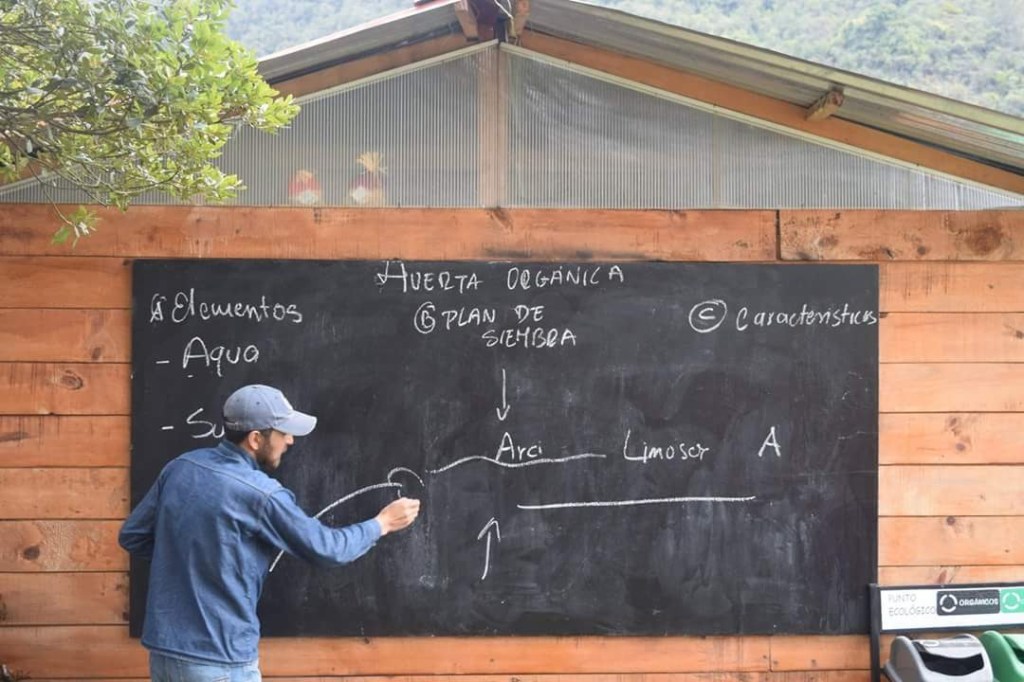 HUERTA ORGÁNICA
A Elementos
- Aqua
- Su
B PLAN DE
SIEMBRA
C Características
Arci Limoser A
PUNTO
ECOLÓGICO
ORGÁNICOS